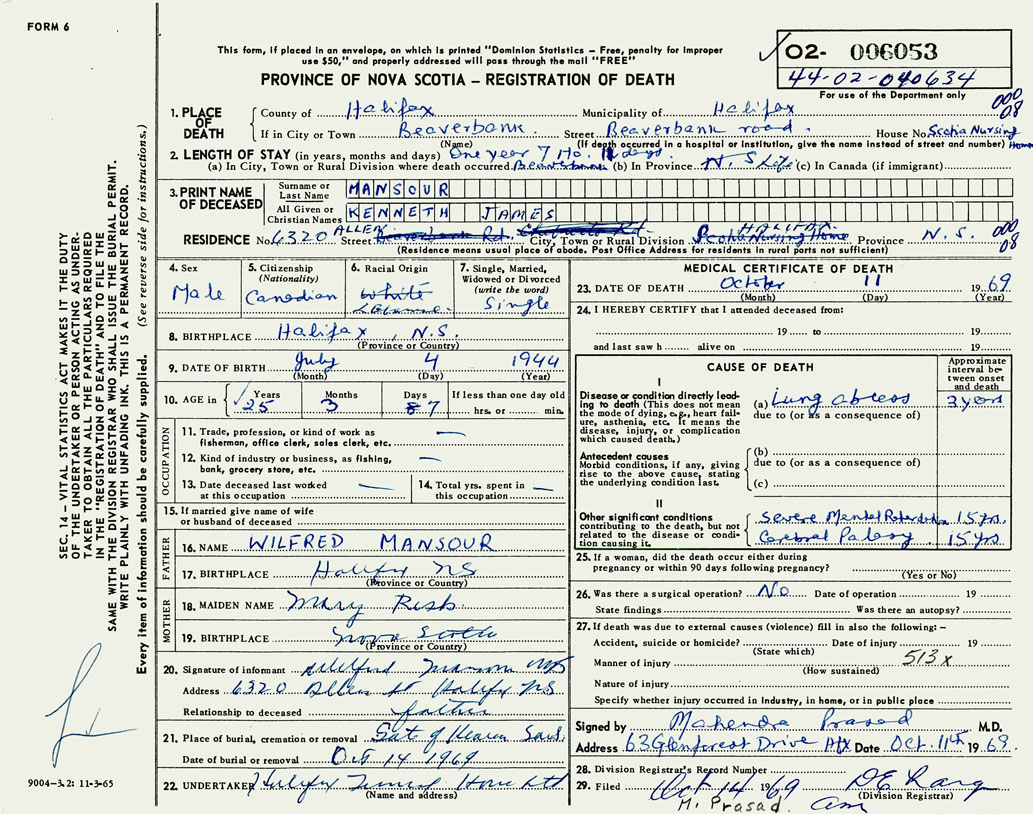 FORM 6
This form, if placed in an envelope, on which is printed "Dominion Statistics – Free, penalty for improper
use $50," and properly addressed will pass through the mail "FREE"
PROVINCE OF NOVA SCOTIA – REGISTRATION OF DEATH
02- 006053
44-02-040634
For use of the Department only
000
08
1. PLACE OF DEATH
County of Halifax Municipality of Halifax
If in City or Town Beaverbank Street Beaverbank road House No. Scotia Nursing Home
(Name) (If death occurred in a hospital or institution, give the name instead of street and number)
2. LENGTH OF STAY (in years, months and days) One year 7 Mo. days
(a) In City, Town or Rural Division where death occurred Beaverbank (b) In Province N.S. Life (c) In Canada (if immigrant)
3. PRINT NAME OF DECEASED
Surname or Last Name MANSOUR
All Given or Christian Names KENNETH JAMES
RESIDENCE No. 6320 ALLEN Street Beaverbank Rd. City, Town or Rural Division HALIFAX Scotia Nursing Home Province N.S.
(Residence means usual place of abode. Post Office Address for residents in rural parts not sufficient)
000
08
4. Sex
Male
5. Citizenship
(Nationality)
Canadian
6. Racial Origin
White
Lebanese
7. Single, Married,
Widowed or Divorced
(write the word)
Single
8. BIRTHPLACE Halifax, N.S.
(Province or Country)
9. DATE OF BIRTH July 4 1944
(Month) (Day) (Year)
10. AGE in Years 25 Months 3 Days 7 If less than one day old
hrs. or min.
OCCUPATION
11. Trade, profession, or kind of work as
fisherman, office clerk, sales clerk, etc. —
12. Kind of industry or business, as fishing,
bank, grocery store, etc. —
13. Date deceased last worked
at this occupation —
14. Total yrs. spent in
this occupation —
15. If married give name of wife
or husband of deceased
FATHER
16. NAME WILFRED MANSOUR
17. BIRTHPLACE Halifax NS
(Province or Country)
MOTHER
18. MAIDEN NAME Mary Risk
19. BIRTHPLACE Nova Scotia
(Province or Country)
20. Signature of informant Wilfred Mansour
Address 6320 Allen St Halifax NS
Relationship to deceased father
21. Place of burial, cremation or removal Gate of Heaven Sack.
Date of burial or removal Oct 14 1969
22. UNDERTAKER Halifax Funeral Home Ltd
(Name and address)
MEDICAL CERTIFICATE OF DEATH
23. DATE OF DEATH October 11 1969
(Month) (Day) (Year)
24. I HEREBY CERTIFY that I attended deceased from:
19 to 19
and last saw h alive on 19
CAUSE OF DEATH
Approximate
interval be-
tween onset
and death
I
Disease or condition directly lead-
ing to death (This does not mean
the mode of dying, e.g., heart fail-
ure, asthenia, etc. It means the
disease, injury, or complication
which caused death.)
(a) Lung abcess 3 years
due to (or as a consequence of)
Antecedent causes
Morbid conditions, if any, giving
rise to the above cause, stating
the underlying condition last.
(b)
due to (or as a consequence of)
(c)
II
Other significant conditions
contributing to the death, but not
related to the disease or condi-
tion causing it.
Severe Mental Retardation 15 yrs.
Cerebral Palsy 15 yrs
25. If a woman, did the death occur either during
pregnancy or within 90 days following pregnancy?
(Yes or No)
26. Was there a surgical operation? No Date of operation 19
State findings Was there an autopsy?
27. If death was due to external causes (violence) fill in also the following: –
Accident, suicide or homicide? Date of injury 19
(State which)
Manner of injury 513x
(How sustained)
Nature of injury
Specify whether injury occurred in industry, in home, or in public place
Signed by Mahendra Prasad M.D.
Address 63 Glenforest Drive Hfx Date Oct. 11th 1969.
28. Division Registrar's Record Number
29. Filed Oct 14 1969
(Division Registrar)
M. Prasad.
SEC. 14 – VITAL STATISTICS ACT MAKES IT THE DUTY
OF THE UNDERTAKER OR PERSON ACTING AS UNDER-
TAKER TO OBTAIN ALL THE PARTICULARS REQUIRED
IN THE "REGISTRATION OF DEATH" AND TO FILE THE
SAME WITH THE DIVISION REGISTRAR WHO SHALL ISSUE THE BURIAL PERMIT.
WRITE PLAINLY WITH UNFADING INK. THIS IS A PERMANENT RECORD.
Every item of information should be carefully supplied. (See reverse side for instructions.)
9004–3.2: 11-3-65